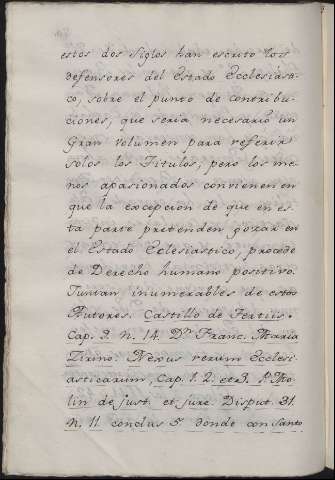 estos dos Siglos han escrito los
defensores del Estado Ecclesiásti-
co, sobre el punto de contribu-
ciones, que seria necesario un
Gran volumen para referir
solos los Titulos; pero los me-
nos apasionados convienen en
que la excepcion de que en es-
ta parte pretenden gozar en
el Estado Eclesiastico, procede
de Derecho humano positivo.
Juntan inumerables de estos
Autores. Castillo de Tertiis.
Cap. 9. n. 14. Dn Franc. Maria
Zirino: Nexus rerum Ecclesi-
asticarum, Cap. 1. 2. et 3. P. Mo-
lin de just. et jure. Disput. 31.
N. 11 conclus 5ª donde con Santo